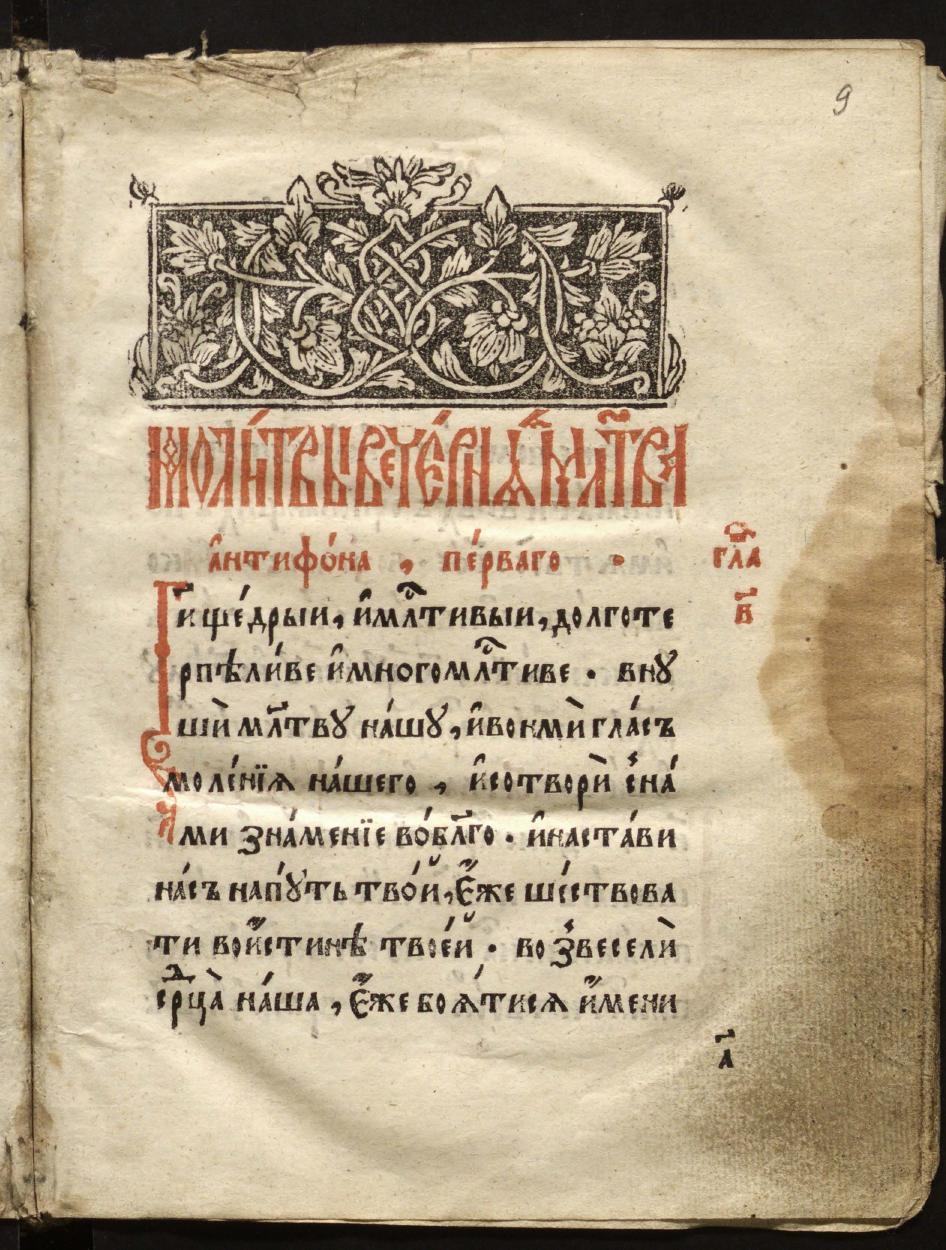 9
моли́твы вече́рнѧ и҆ мл҃тва
а҆нтифо́на , пе́рваго .
гла̑
в҃
Ги ще́дрыи, и҆мл҃тивыи, долготе
рпѣли́ве и҆многомл҃тиве . внꙋ
шѝ мл҃твꙋ на́шꙋ, и҆вонмѝ гла́съ
моле́нїѧ на́шего , и҆сотворѝ с̾на́
ми зна́менїе во́бл҃го . и҆наста́ви
на́съ напꙋ́ть тво́й, є҆́же ше́ствова
ти вои҆́стинѣ твое́й . во з̾веселѝ
ср́дца̀ на́ша , є҆́же боѧ́тисѧ и҆́мени
а҃